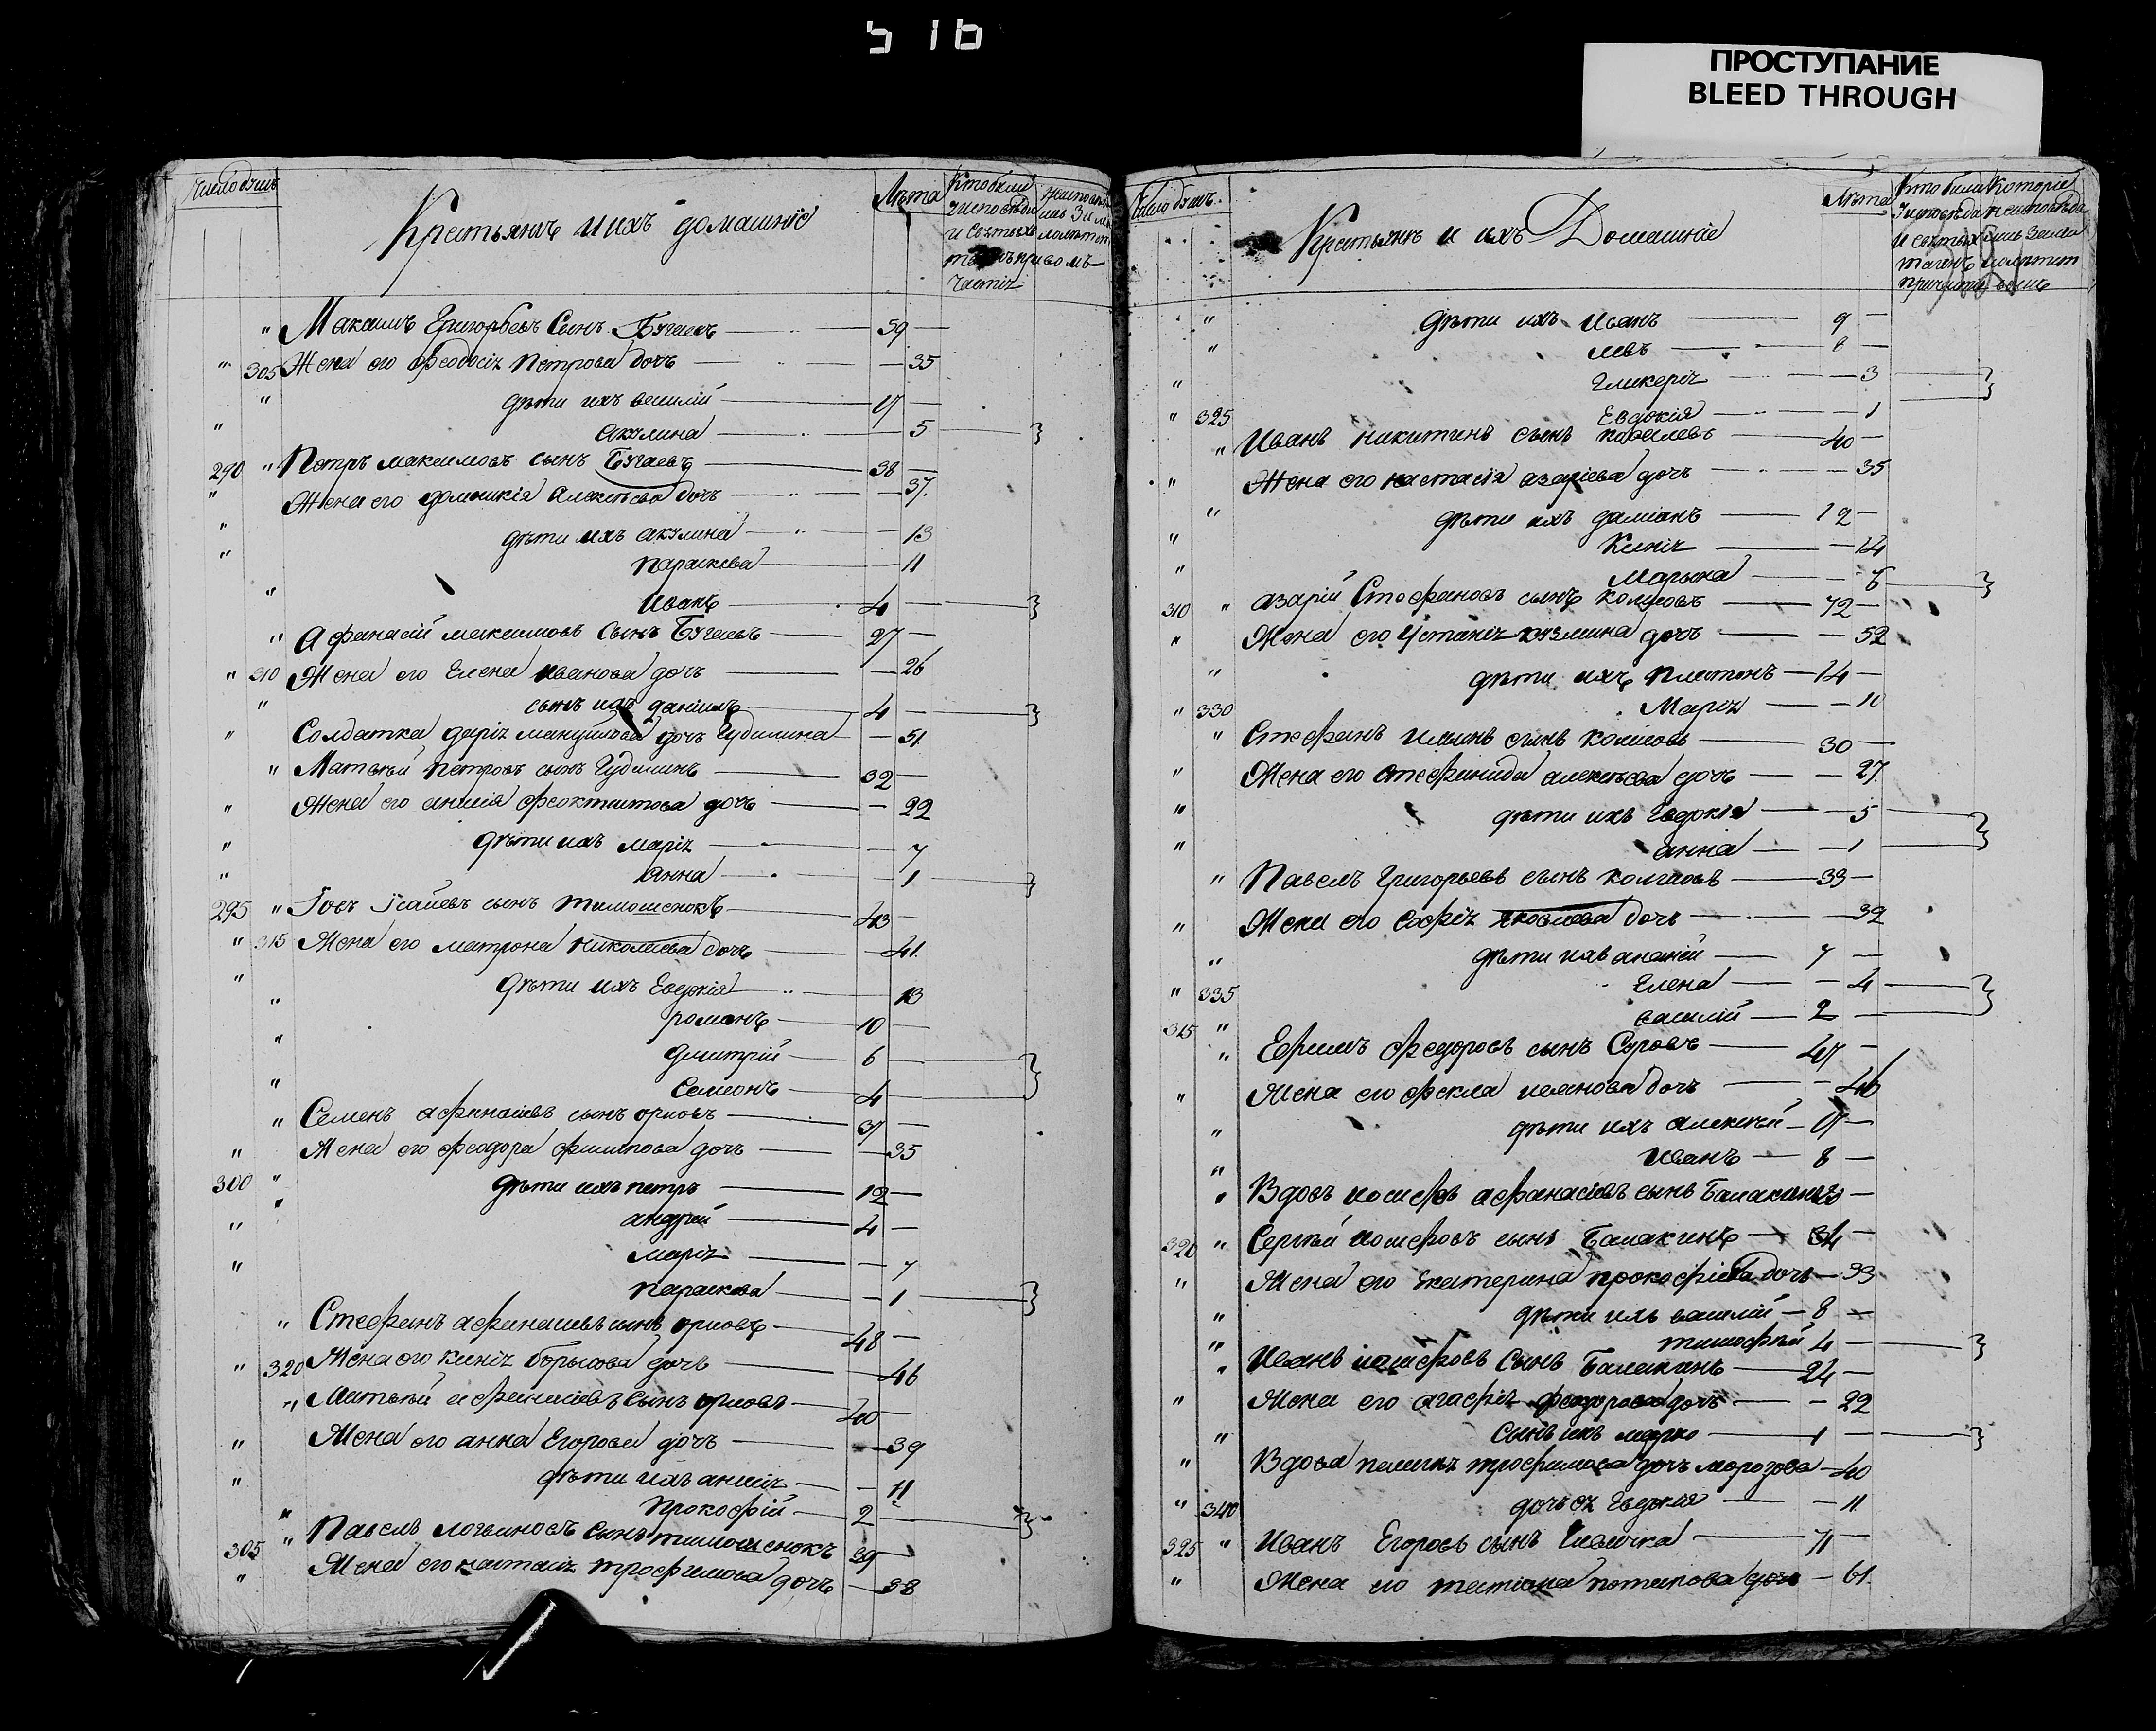 516
ПРОСТУПАНИЕ
BLEED THROUGH
Число душъ
Крестьянѣ и ихъ домашніе
Лѣта
Кто были
и святыхъ
Максимъ Григорьевъ Сынъ Бугаевъ 59
" 305 Жена его Феодосія Петрова дочь 35
дѣти ихъ василій 17
акулина 5
290 " Петръ максимовъ сынъ Бугаевъ 38
Жена его домникія алексѣева дочь 37
дѣти ихъ акулина 13
параскева 11
иванъ 4
Афанасій максимовъ сынъ Бугаевъ 27
" 310 Жена его Елена иванова дочь 26
сынъ ихъ даніилъ 4
Солдатка дарія мануилова дочь Гудилина 51
Матвѣй петровъ сынъ Гудилинъ 32
Жена его анисія феоктистова дочь 22
дѣти ихъ марія 7
анна 1
295 " Іовъ Ісаіевъ сынъ тимошенокъ 43
" 315 Жена его матрона николаева дочь 41
Дѣти ихъ Евдокія 13
романъ 10
димитрій 6
Семіонъ 4
Семенъ афанасіевъ сынъ орловъ 37
Жена его феодора филипова дочь 35
300 " дѣти ихъ петръ 12
андрей 4
марія 7
параскева 1
Стефанъ афанасіевъ сынъ орловъ 48
" 320 Жена его ксенія борисова дочь 46
Матвѣй афанасіевъ сынъ орловъ 40
Жена его анна Егорова дочь 39
дѣти ихъ анисія 11
прокофій 2
305 " Павелъ логвиновъ сынъ тимошенокъ 39
Жена его настасія трофимова дочь 38
Число душъ
Крестьянѣ и ихъ Домашніе
Лѣта
Кто были Которіе
Дѣти ихъ иванъ 9
левъ 8
Гликерія 3
" 325 Евдокія 1
Иванъ никитинъ сынъ 40
Жена его настасія азаріева дочь 35
дѣти ихъ даміанъ 12
Ксенія 14
Марья 6
310 " азарій Стефановъ сынъ 72
Жена его Устинія кузмина дочь 52
дѣти ихъ платонъ 14
" 330 Марія 10
Стефанъ ильинъ сынъ 30
Жена его стефанида алексѣева дочь 27
дѣти ихъ Евдокія 5
анна 1
Павелъ Григорьевъ сынъ 33
Жена его софія яковлева дочь 32
дѣти ихъ ананій 7
" 335 Елена 4
315 " василій 2
Ефимъ федоровъ сынъ Суровъ 47
Жена его фекла иванова дочь 46
дѣти ихъ алексѣй 17
Иванъ 8
Вдовъ иосифъ афанасіевъ сынъ Балакинъ
320 " Сергѣй иосифовъ сынъ Балакинъ 34
Жена его екатерина прокофіева дочь 33
дѣти ихъ василій 8
тимофѣй 4
Иванъ иосифовъ сынъ Балакинъ 24
Жена его агафія феодорова дочь 22
Сынъ ихъ марко 1
Вдова пелагея трофимова дочь морозова 40
" 340 дочь ея Евдокія 11
325 " Иванъ Егоровъ сынъ 71
Жена его татіана потапова дочь 61